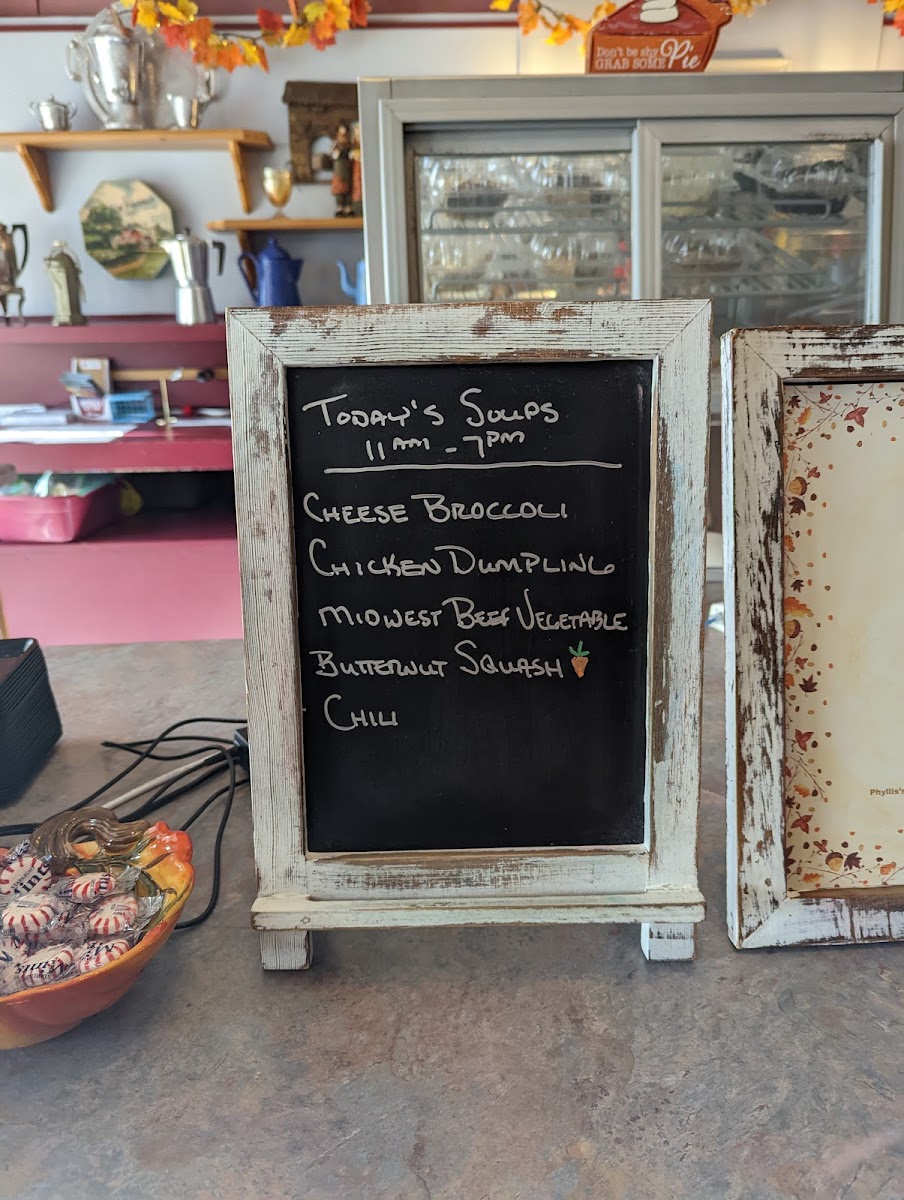 Don't be shy
GRAB SOME Pie
TODAY'S SOUPS
11AM - 7PM
CHEESE BROCCOLI
CHICKEN DUMPLING
MIDWEST BEEF VEGETABLE
BUTTERNUT SQUASH
CHILI
Phyllis's